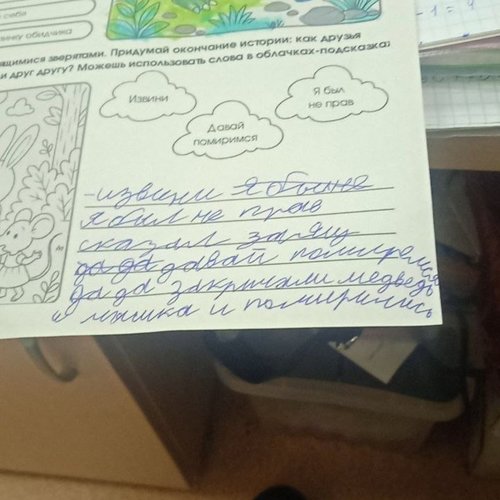 себя
обидчика
зверятами. Придумай окончание истории: как друзья
друг другу? Можешь использовать слова в облачках-подсказках
Извини
Давай
помиримся
Я был
не прав
-1=
-извини я был не
я был не прав
сказал заяц
да да давай помиремся
да да закричали медведь
и мышка и помирились